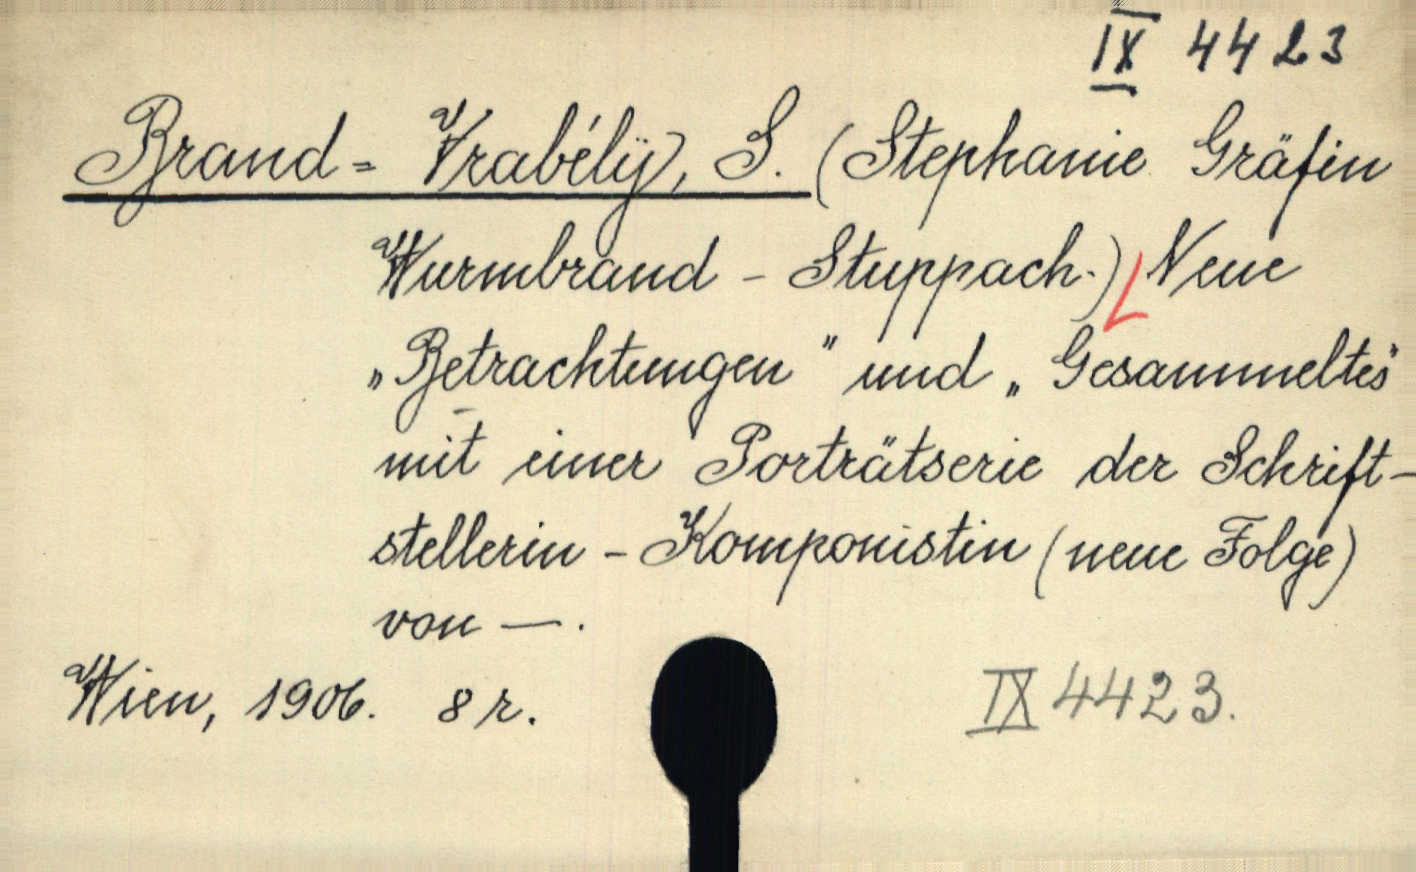 IX 4423
Brand= Vrabélÿ, S. (Stephanie Gräfin
Wurmbrand - Stuppach.) Neue
„Betrachtungen" und „Gesammeltes"
mit einer Porträtserie der Schrift-
stellerin - Komponistin (neue Folge)
von —.
Wien, 1906. 8 r. IX 4423.